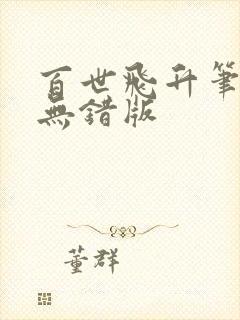 百世飛升筆
無錯版
董群